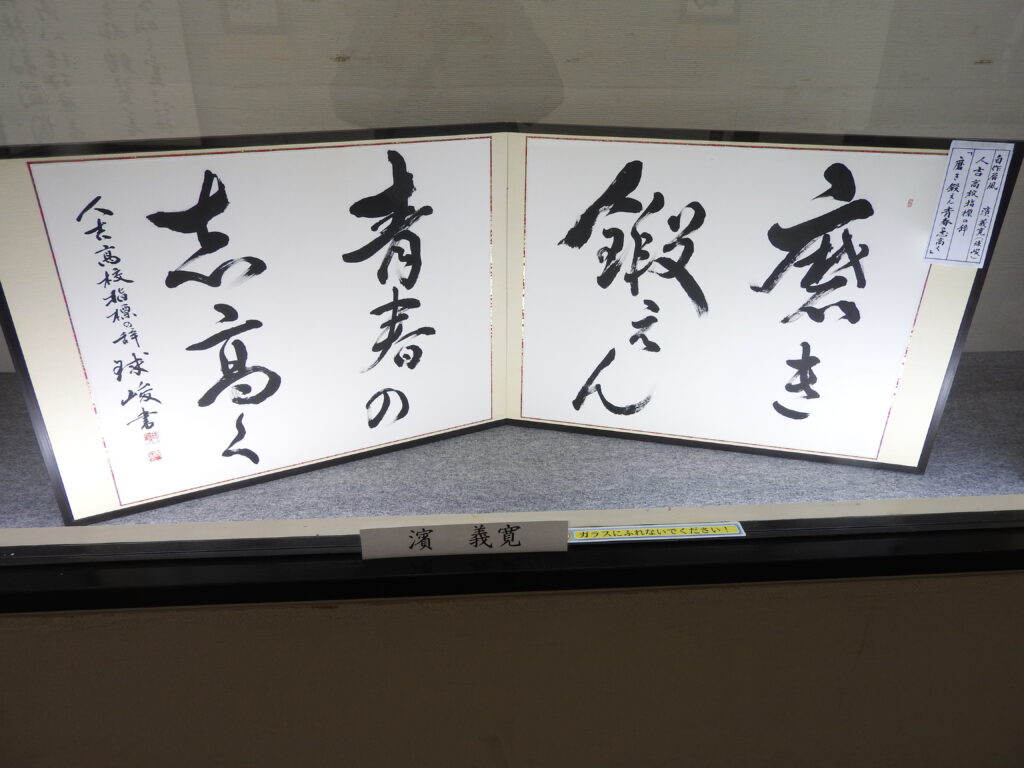 磨き
鍛えん
青春の
志高く
人吉高校指標の辞 球峻書
自作屏風 濱義寛(球峻)
人吉高校指標の辞
「磨き鍛えん青春志高く」
濱 義寛
ガラスにふれないでください!